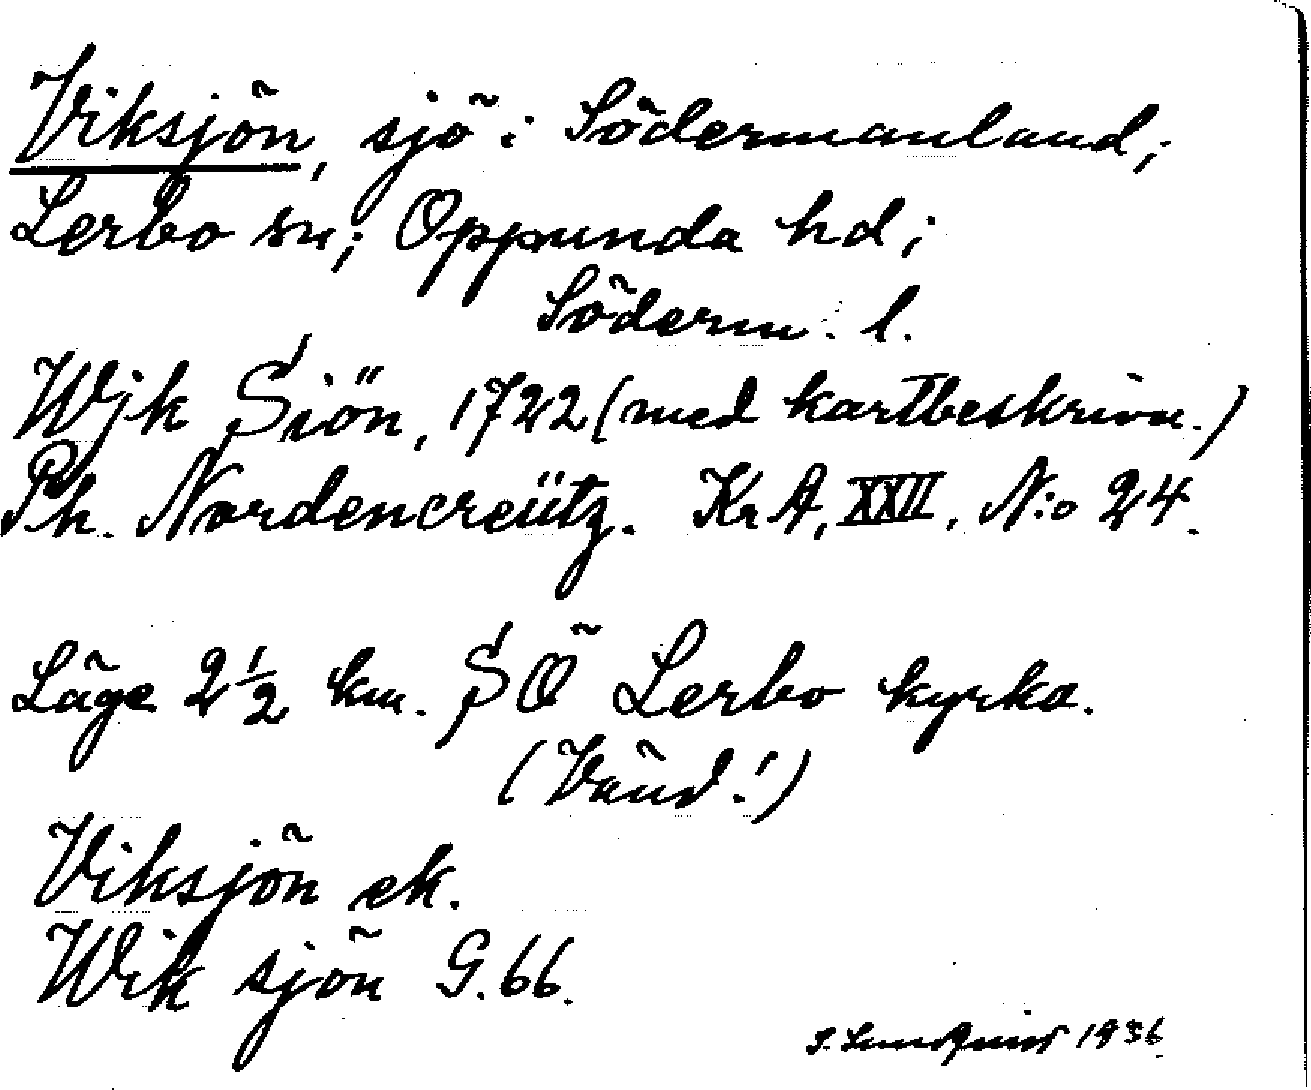 Viksjön, sjö i Södermanland;
Lerbo sn; Oppunda hd;
Söderm. l.
Wjk Siön, 1722 (med kartbeskrivn.)
Ph. Nordencreütz. KrA, XXII, N:o 24.
Läge 2 1/2 km. SÖ Lerbo kyrka.
(Vänd!)
Viksjön ek.
Wik sjön G. 66.
S. Lundquist 1936